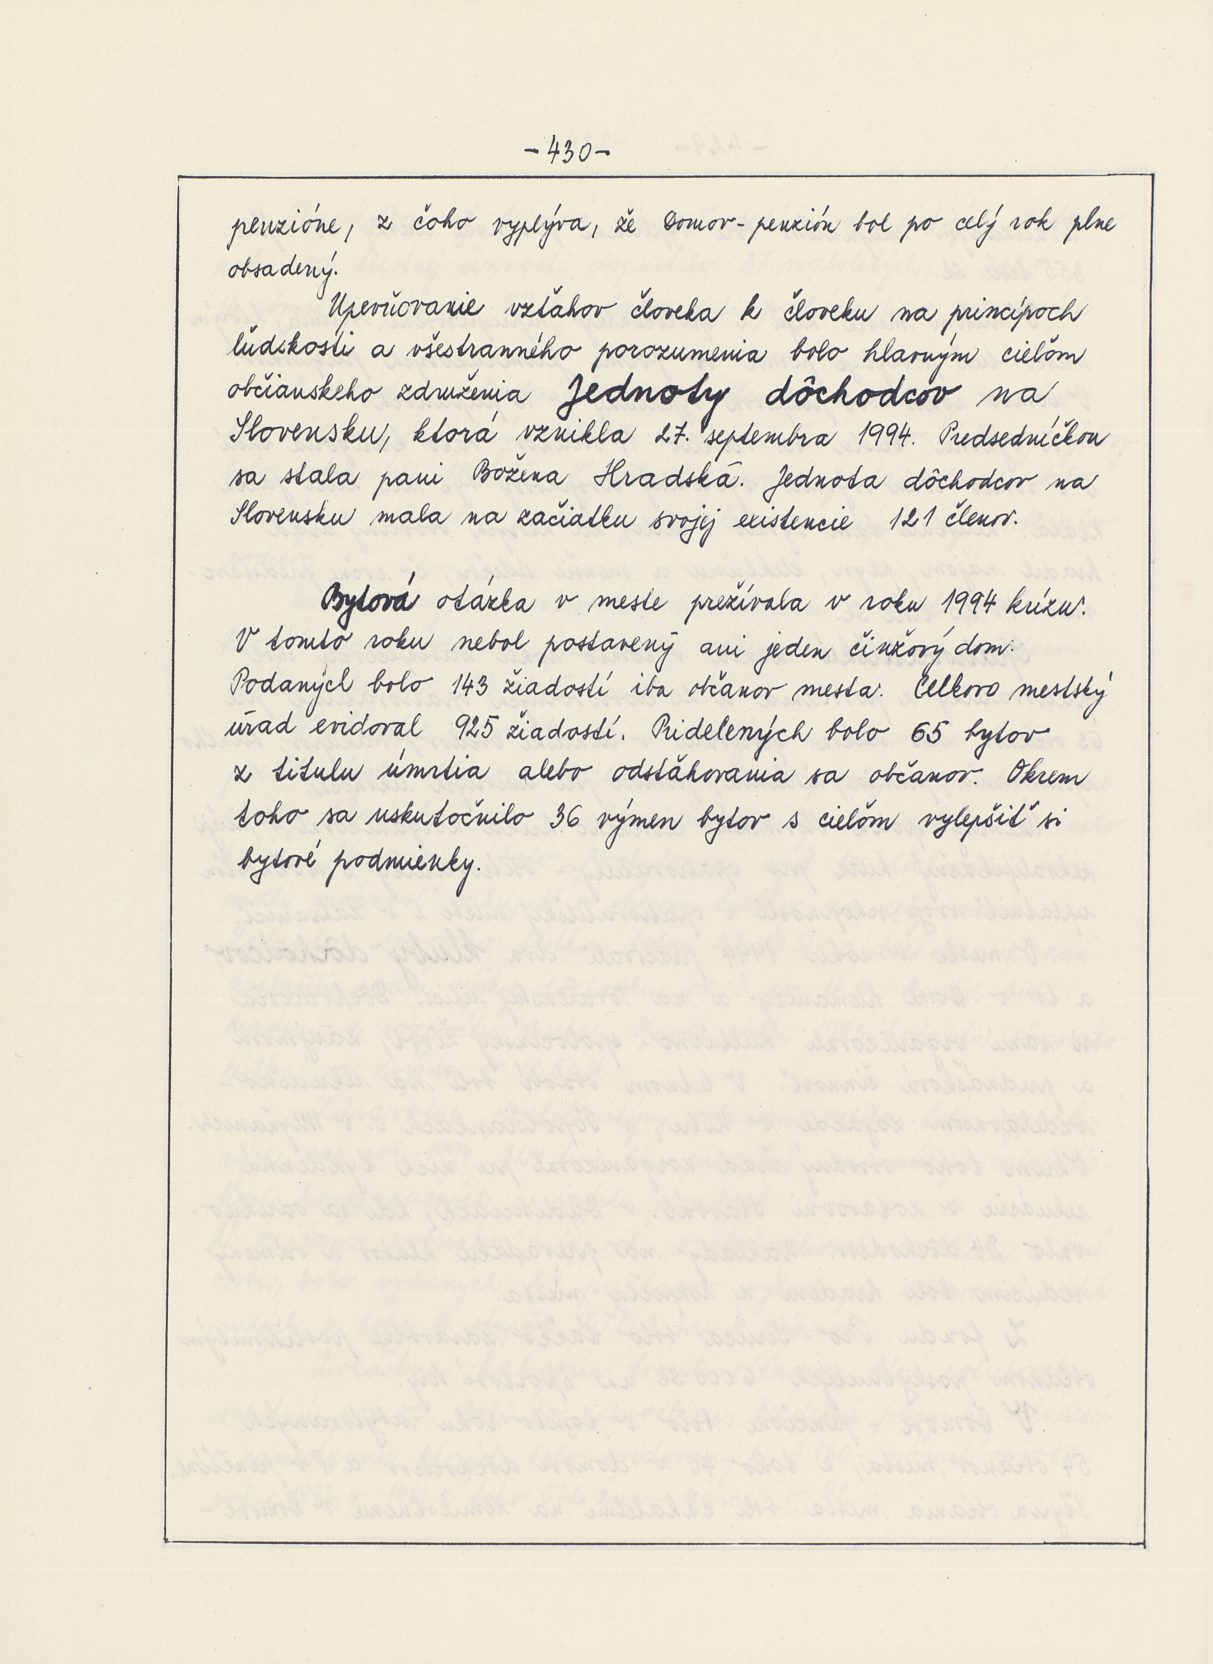 -430-
penzióne, z čoho vyplýva, že Domov-penzión bol po celý rok plne
obsadený.
Upevňovanie vzťahov človeka k človeku na princípoch
ľudskosti a všestranného porozumenia bolo hlavným cieľom
občianskeho združenia Jednoty dôchodcov na
Slovensku, ktorá vznikla 27. septembra 1994. Predsedníčkou
sa stala pani Božena Hradská. Jednota dôchodcov na
Slovensku mala na začiatku svojej existencie 121 členov.
Bytová otázka v meste prežívala v roku 1994 krízu.
V tomto roku nebol postavený ani jeden činžový dom.
Podaných bolo 143 žiadostí iba občanov mesta. Celkovo mestský
úrad evidoval 925 žiadostí. Pridelených bolo 65 bytov
z titulu úmrtia alebo odsťahovania sa občanov. Okrem
toho sa uskutočnilo 36 výmen bytov s cieľom vylepšiť si
bytové podmienky.